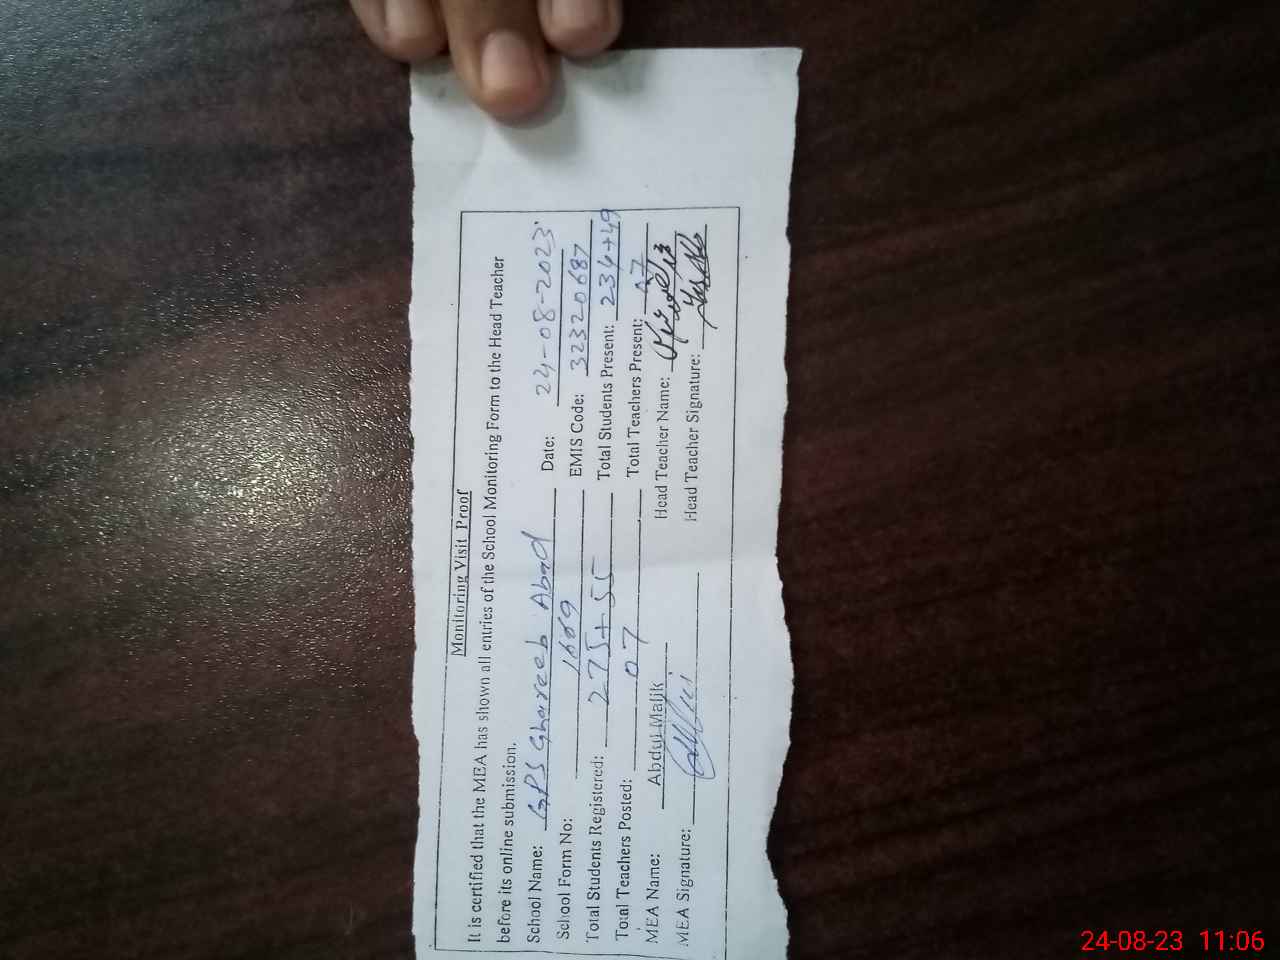 Monitoring Visit Proof
It is certified that the MEA has shown all entries of the School Monitoring Form to the Head Teacher
before its online submission.
School Name: GPS Ghareeb Abad Date: 24-08-2023
School Form No: 1669 EMIS Code: 32320687
Total Students Registered: 275+55 Total Students Present: 234+49
Total Teachers Posted: 07 Total Teachers Present: 07
MEA Name: Abdul Malik Head Teacher Name:
MEA Signature: Head Teacher Signature:
24-08-23 11:06